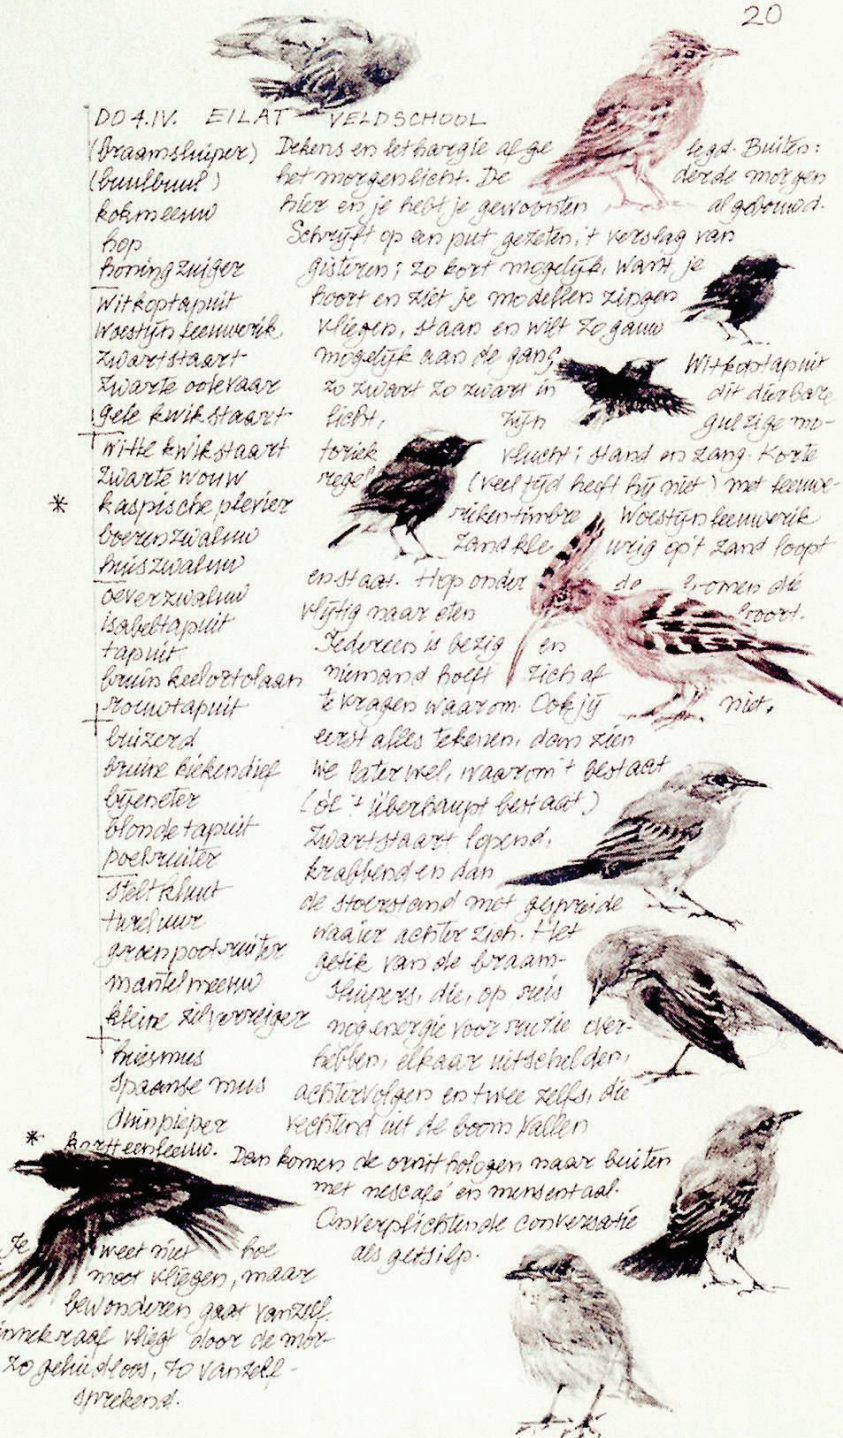 20
DO 4.IV. EILAT VELDSCHOOL
(braamsluiper)
(buulbuul)
kokmeeuw
hop
honingzuiger
witkoptapuit
woestijnleeuwerik
zwartstaart
zwarte ooievaar
gele kwikstaart
witte kwikstaart
zwarte wouw
* kaspische plevier
boerenzwaluw
huiszwaluw
oeverzwaluw
isabeltapuit
tapuit
bruinkeelortolaan
rouwtapuit
buizerd
bruine kiekendief
bijeneter
blonde tapuit
poelruiter
steltkluut
tureluur
groenpootruiter
mantelmeeuw
kleine zilverreiger
huismus
spaanse mus
duinpieper
* kortteenleeuw.
Dekens en lethargie afgelegd. Buiten:
het morgenlicht. De derde morgen
hier en je hebt je gewoonten al gebouwd.
Schrijft op een put gezeten, 't verslag van
gisteren; zo kort mogelijk, want je
hoort en ziet je modellen zingen
vliegen, staan en wilt zo gauw
mogelijk aan de gang. Witkoptapuit
zo zwart zo zwart in dit dierbare
licht, zijn gulzige mo-
toriek vlucht; stand en zang. Korte
regel (veel tijd heeft hij niet) met leeuwe-
rikentimbre Woestijnleeuwerik
zandkleurig op't zand loopt
en staat. Hop onder de bomen die
vlijtig naar eten boort.
Iedereen is bezig en
niemand hoeft zich af
te vragen waarom. Ook jij niet,
eerst alles tekenen, dan zien
we later wel, waarom 't bestaat
(óf 't überhaupt bestaat)
Zwartstaart lopend,
krabbend en dan
de stoerstand met gespreide
waaier achter zich. Het
getik van de braam-
sluipers, die, op reis
nog energie voor ruzie over-
hebben, elkaar uitschelden,
achtervolgen en twee zelfs, die
vechtend uit de boom vallen
Dan komen de ornithologen naar buiten
met nescafé en mensentaal.
Onverplichtende conversatie
als getsilp.
Je weet niet hoe
moet vliegen, maar
bewonderen gaat vanzelf.
vliegt door de mor-
zo geluidloos, zo vanzelf-
sprekend.